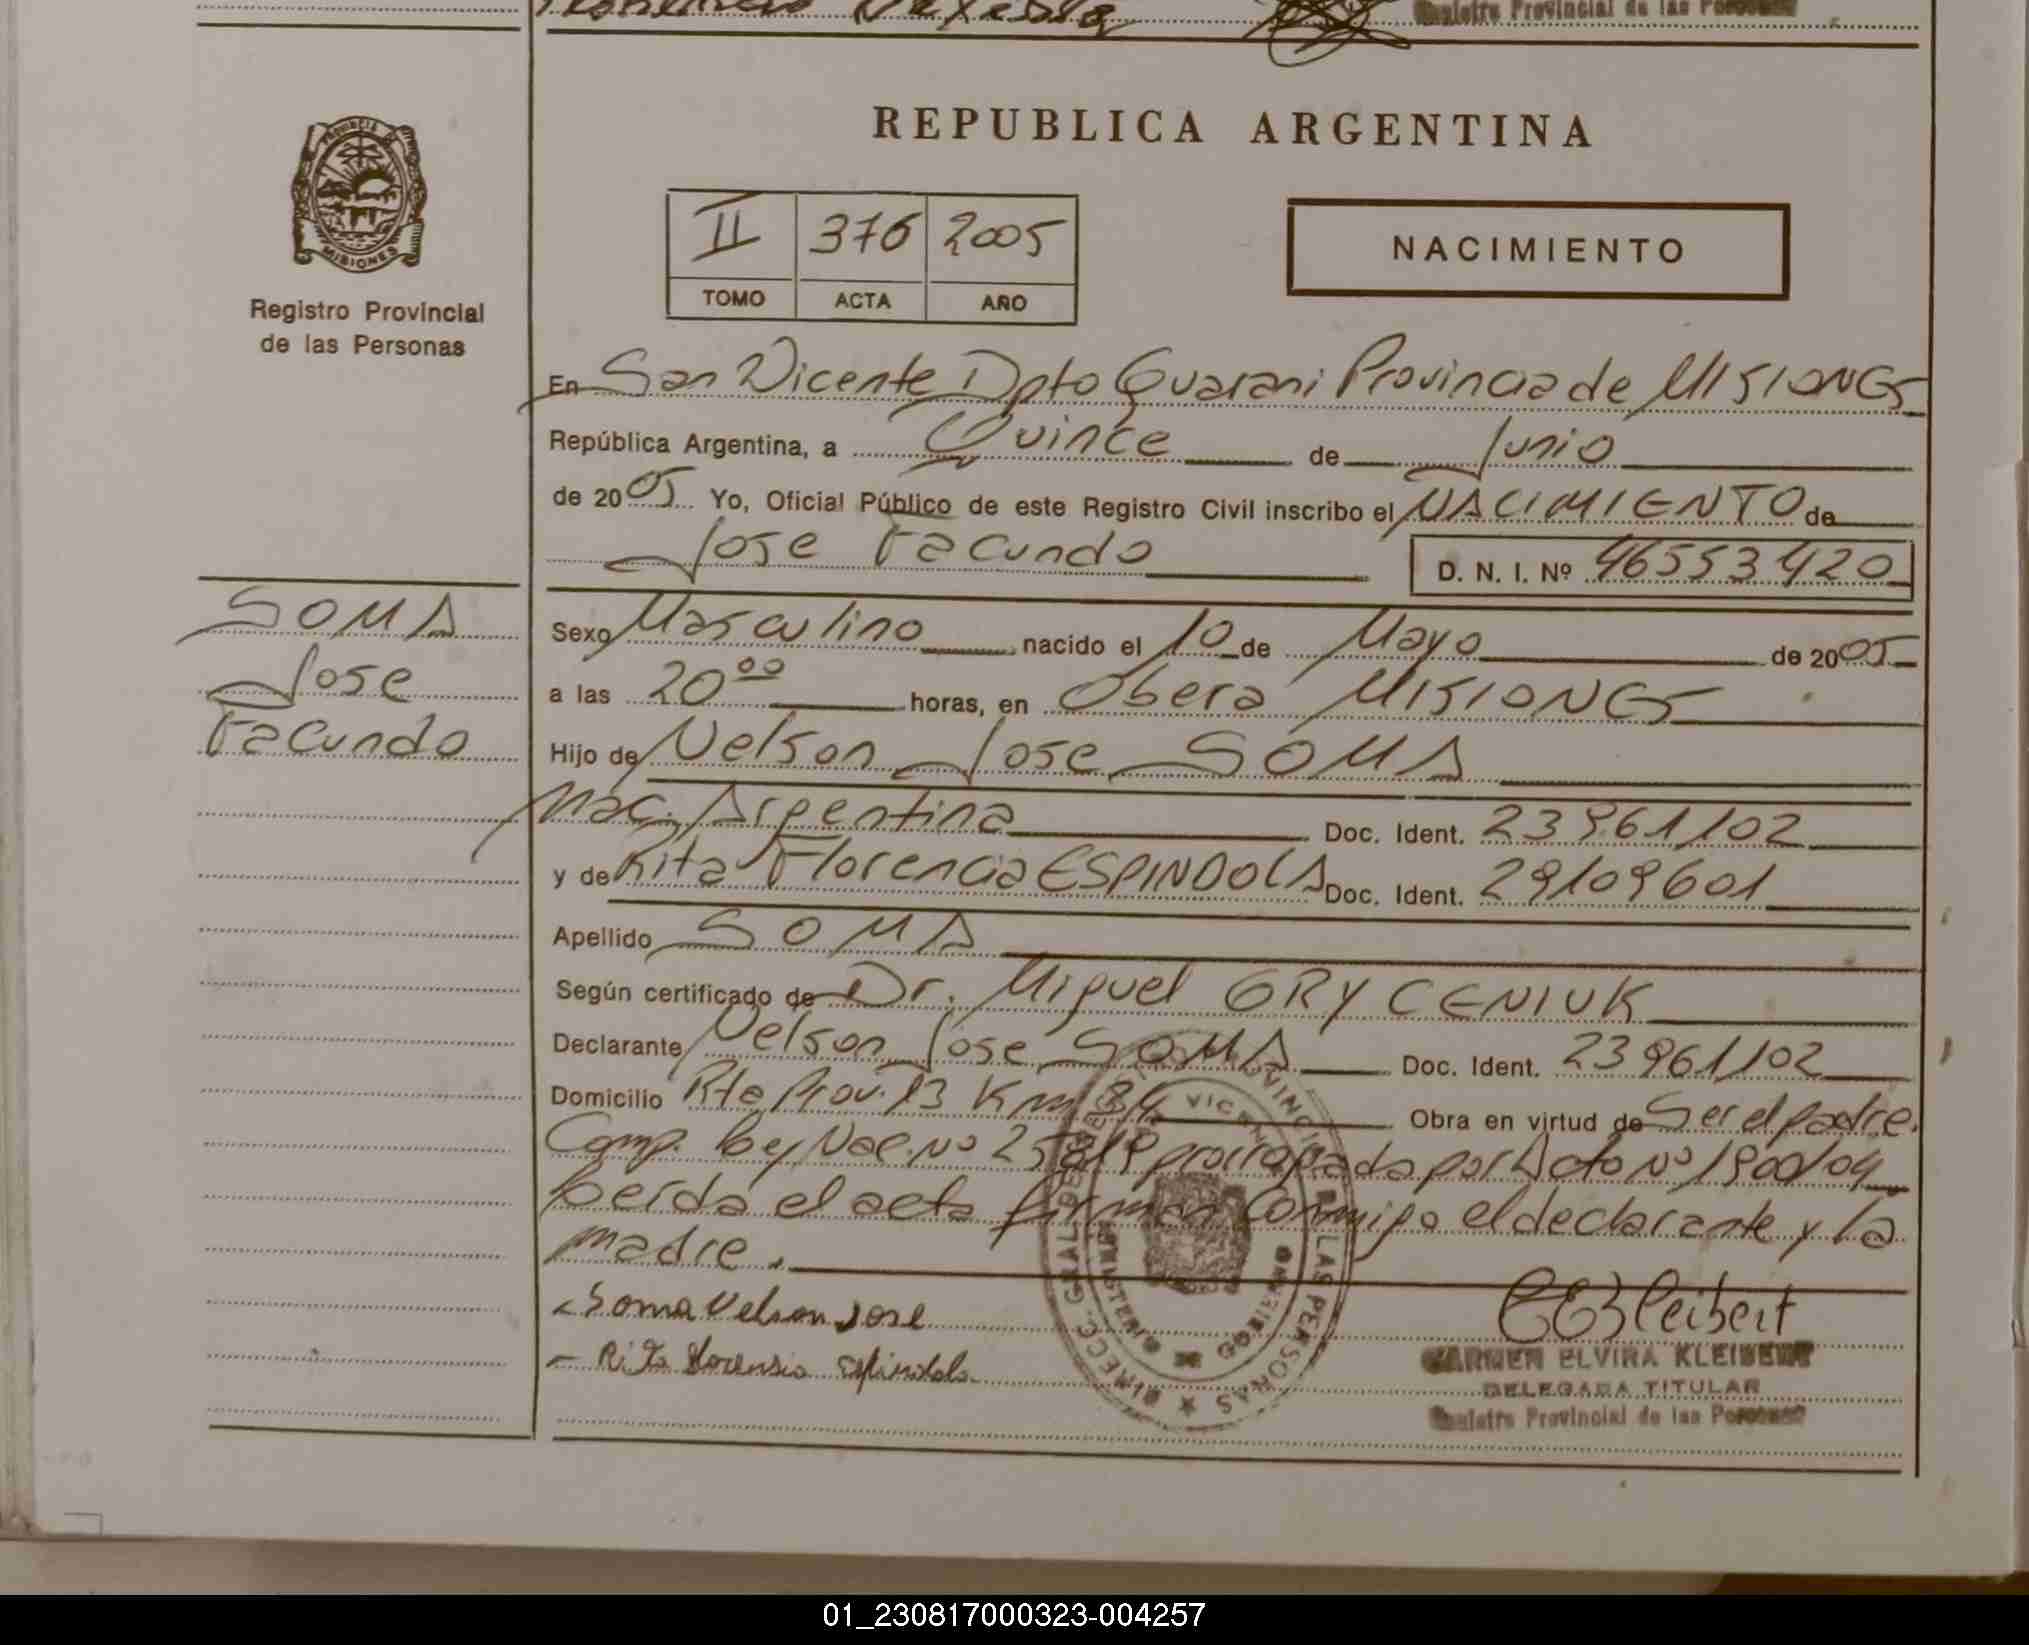 Registro Provincial de las Personas
REPUBLICA ARGENTINA
PROVINCIA DE
MISIONES
Registro Provincial
de las Personas
II 376 2005
TOMO ACTA AÑO
NACIMIENTO
En San Vicente Dpto Guarani Provincia de MISIONES
República Argentina, a Quince de Junio
de 2005 Yo, Oficial Público de este Registro Civil inscribo el NACIMIENTO de
Jose Facundo D. N. I. Nº 46553420
SOMA
Jose
Facundo
Sexo Masculino nacido el 10 de Mayo de 2005
a las 20 00 horas, en Obera MISIONES
Hijo de Nelson Jose SOMA
Nac. Argentina Doc. Ident. 23961102
y de Rita Florencia ESPINDOLA Doc. Ident. 29109601
Apellido SOMA
Según certificado de Dr. Miguel GRYCENIUK
Declarante Nelson Jose SOMA Doc. Ident. 23961102
Domicilio Rta Prov. 13 Km 34 Obra en virtud de Ser el padre.
Comp. Ley Nac. Nº 25819 prorrogada por Dcto Nº 1900/04
Leida el acta firman conmigo el declarante y la
madre.
Soma Nelson Jose
Rita Florensia Espindola
CARMEN ELVIRA KLEIBERT
DELEGADA TITULAR
Registro Provincial de las Personas
01_230817000323-004257